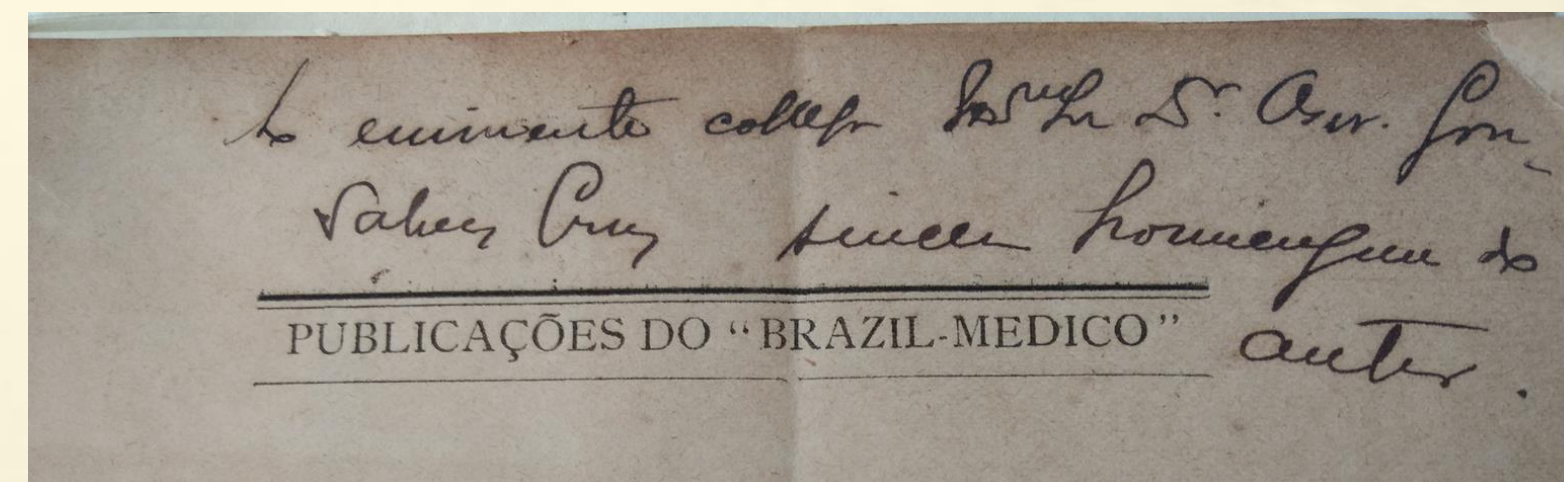 Ao eminente collega Dr. Osw. Gon-
salves Cruz sincera homenagem do
PUBLICAÇÕES DO “BRAZIL-MEDICO”
autor.